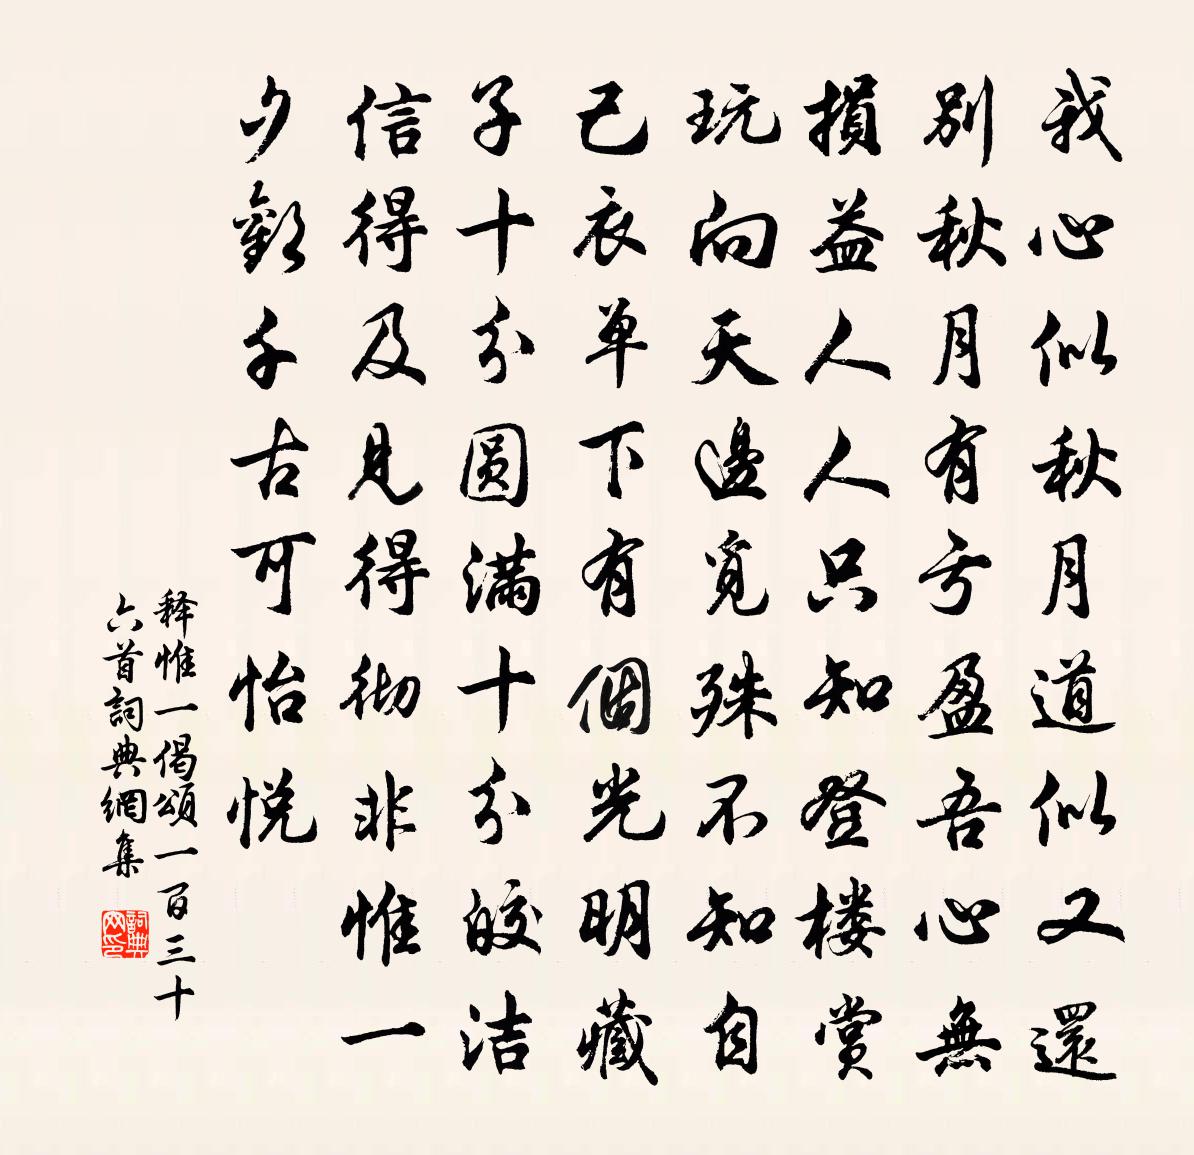 我心似秋月道似又還
別秋月有亏盈吾心無
損益人人只知登楼賞
玩向天邊覓殊不知自
己衣单下有個光明藏
子十分圓滿十分皎洁
信得及見得彻非惟一
夕歡千古可怡悅
释惟一偈頌一百三十
六首詞典網集
詞典網印